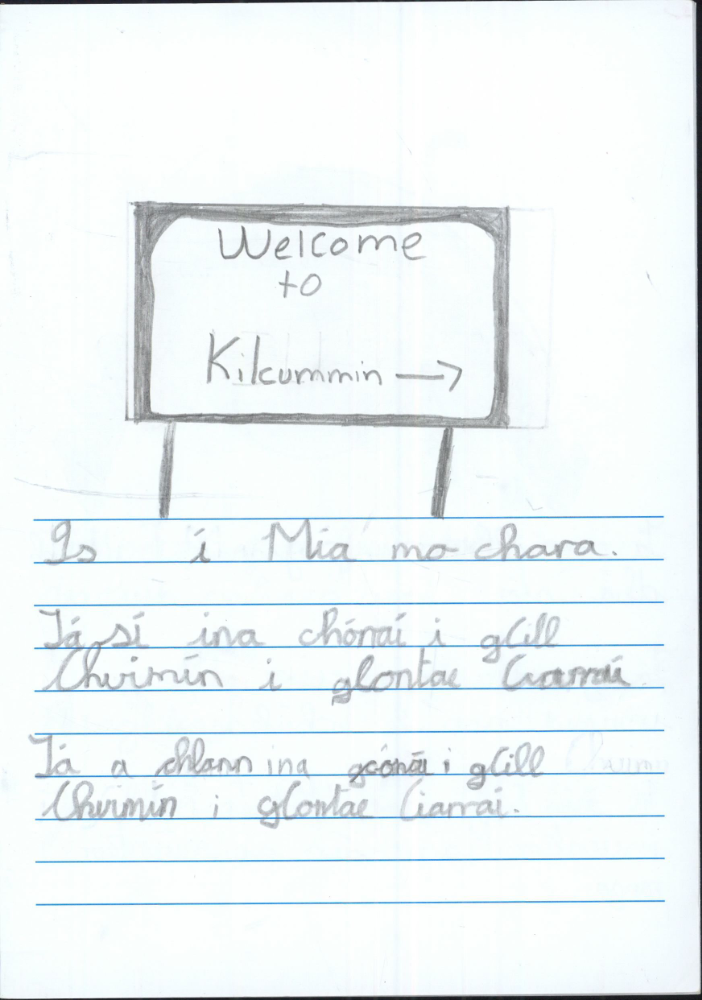 Welcome
to
Kilcummin
Is í Mia mo chara.
Tá sí ina chónaí i gCill
Chuimín i gContae Ciarraí
Tá a chlann ina gcónaí i gCill
Chuimín i gContae Ciarraí.